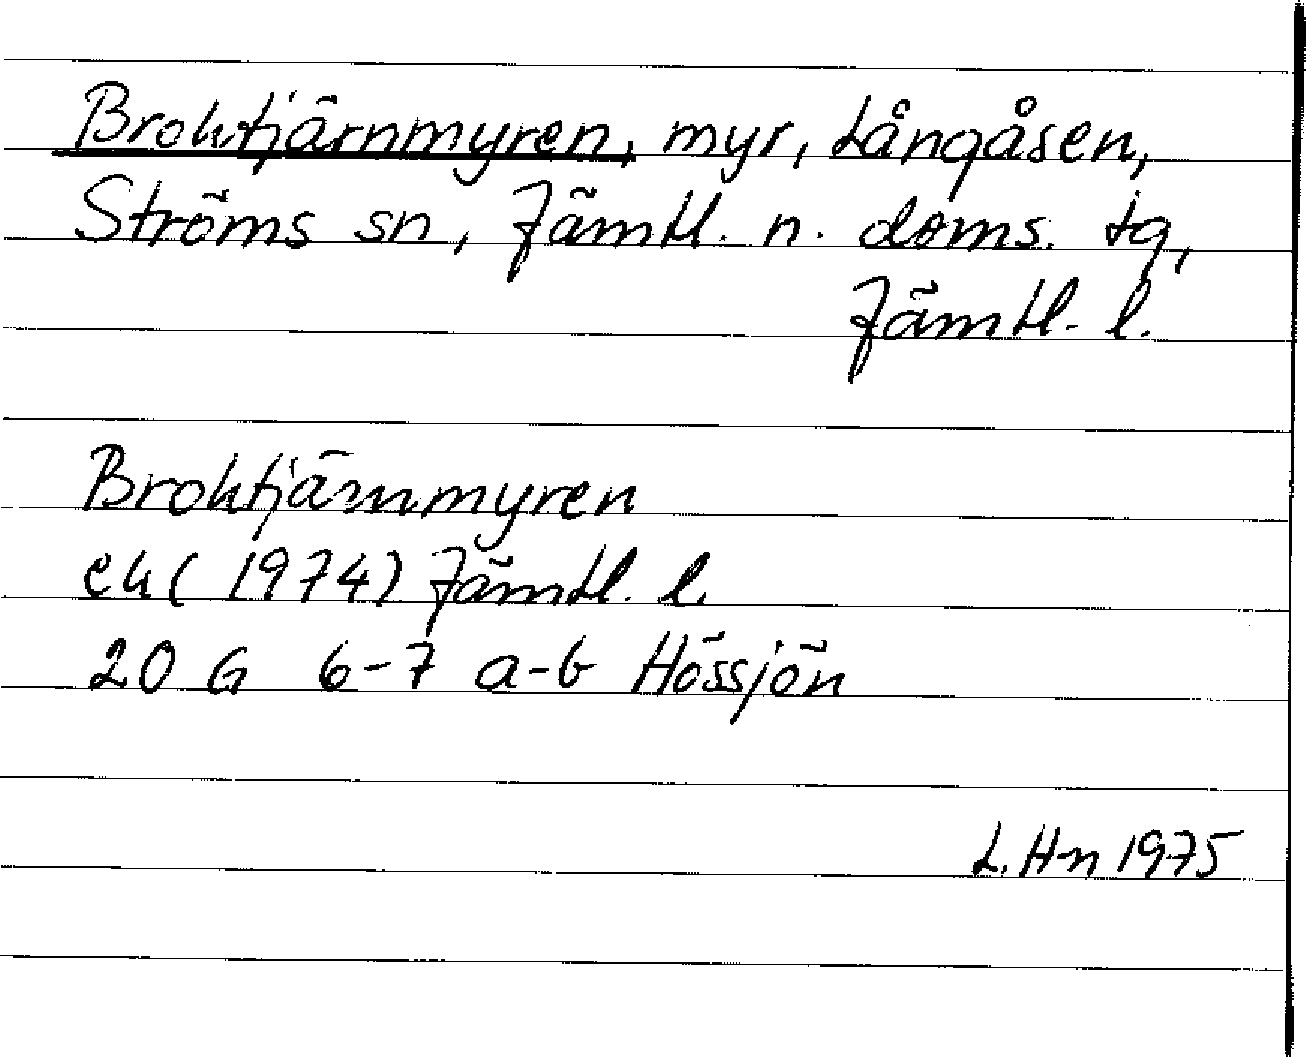 Broktjärnmyren, myr, Långåsen,
Ströms sn, Jämtl. n. doms. tg,
Jämtl. l.
Broktjärnmyren
ek (1974) Jämtl. l.
20 G 6-7 a-b Hössjön
L. H-n 1975